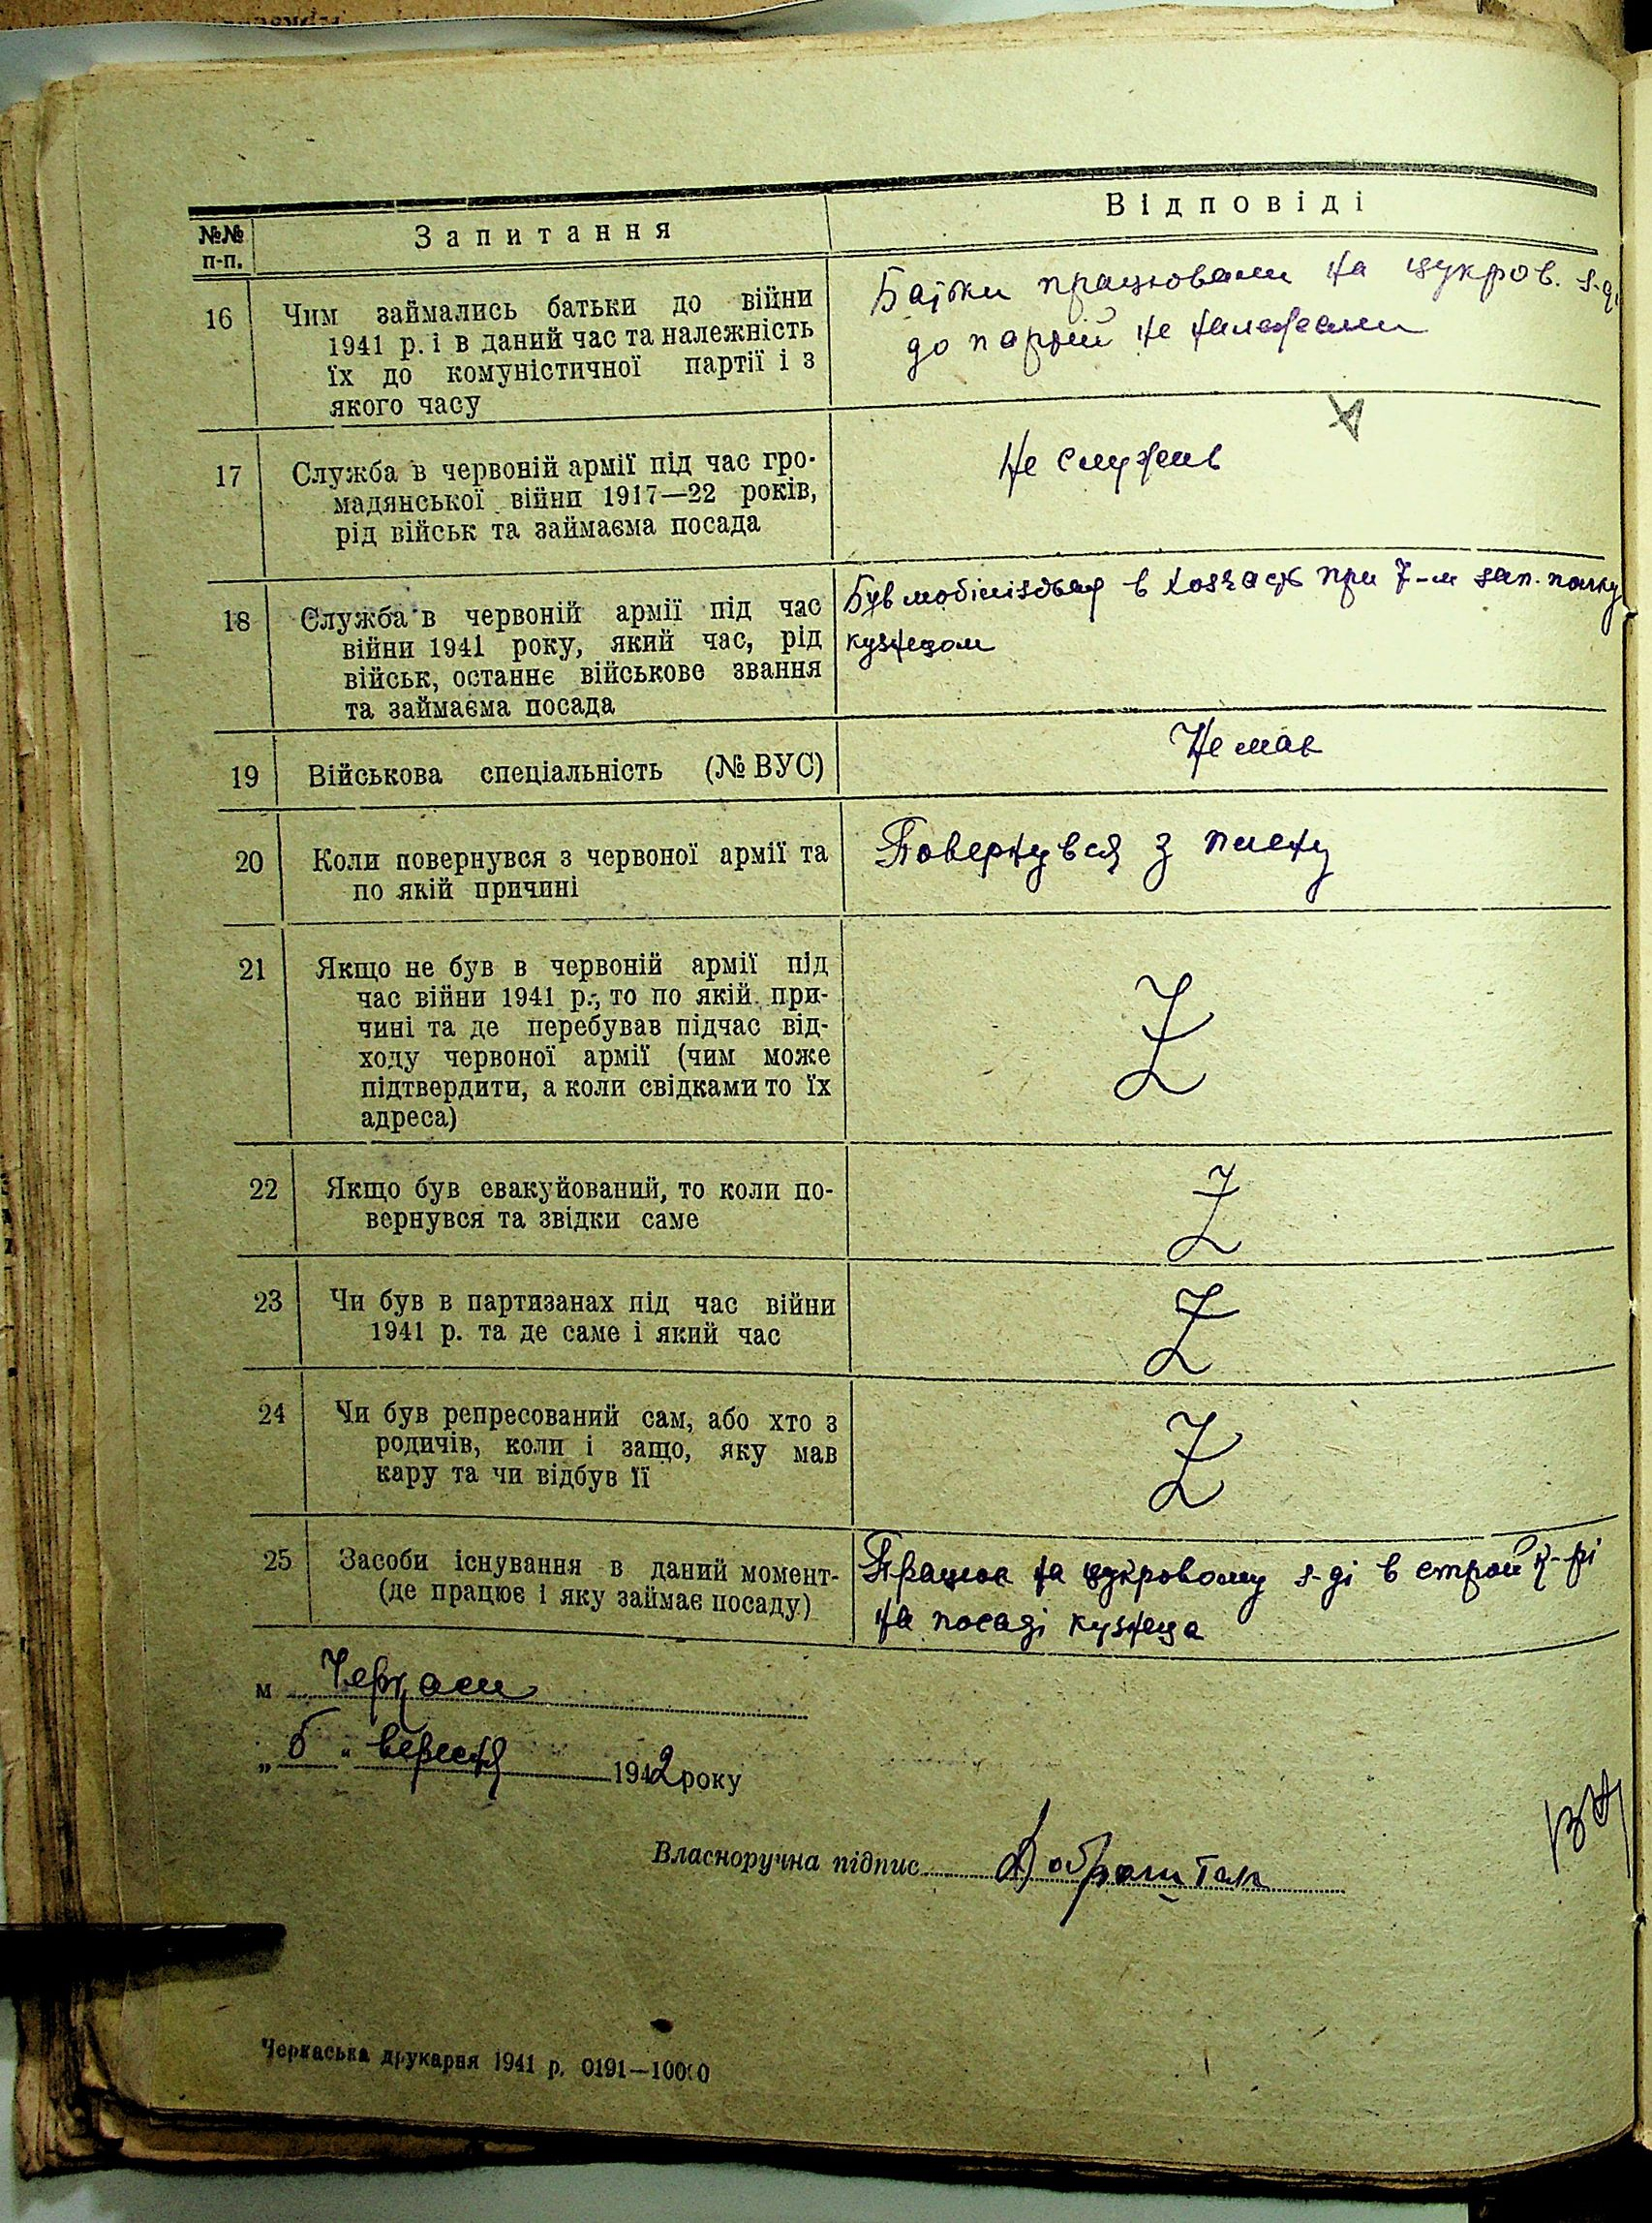 №№ п-п.
Запитання
Відповіді
16
Чим займались батьки до війни
1941 р. і в даний час та належність
їх до комуністичної партії і з
якого часу
Батьки працювали на цукров. з-ді
до партій не належали
17
Служба в червоній армії під час гро-
мадянської війни 1917—22 років,
рід військ та займаєма посада
Не служив
18
Служба в червоній армії під час
війни 1941 року, який час, рід
військ, останнє військове звання
та займаєма посада
Був мобілізован в при 7-м зап. полку
кузнецом
19
Військова спеціальність (№ ВУС)
Не мав
20
Коли повернувся з червоної армії та
по якій причині
Повернувся з плену
21
Якщо не був в червоній армії під
час війни 1941 р., то по якій при-
чині та де перебував підчас від-
ходу червоної армії (чим може
підтвердити, а коли свідками то їх
адреса)
Z
22
Якщо був евакуйований, то коли по-
вернувся та звідки саме
Z
23
Чи був в партизанах під час війни
1941 р. та де саме і який час
Z
24
Чи був репресований сам, або хто з
родичів, коли і защо, яку мав
кару та чи відбув її
Z
25
Засоби існування в даний момент-
(де працює і яку займає посаду)
Працює на цукровому з-ді в строй к-рі
на посаді кузнеца
м Черкаси
„6" вересня 1942 року
Власноручна підпис
Черкаська друкарня 1941 р. 0191—10000